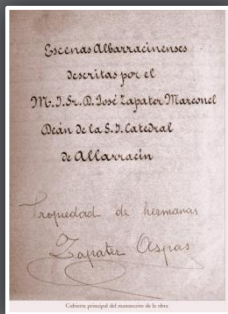 Escenas Albarracinenses
descritas por el
M. I. Sr. D. José Zapater Marconel
Deán de la S. I. Catedral
de Albarracín
Propiedad de hermanas
Zapater Aspas
Cubierta principal del manuscrito de la obra